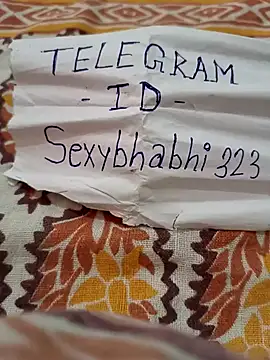 TELEGRAM
- ID -
Sexybhabhi 323